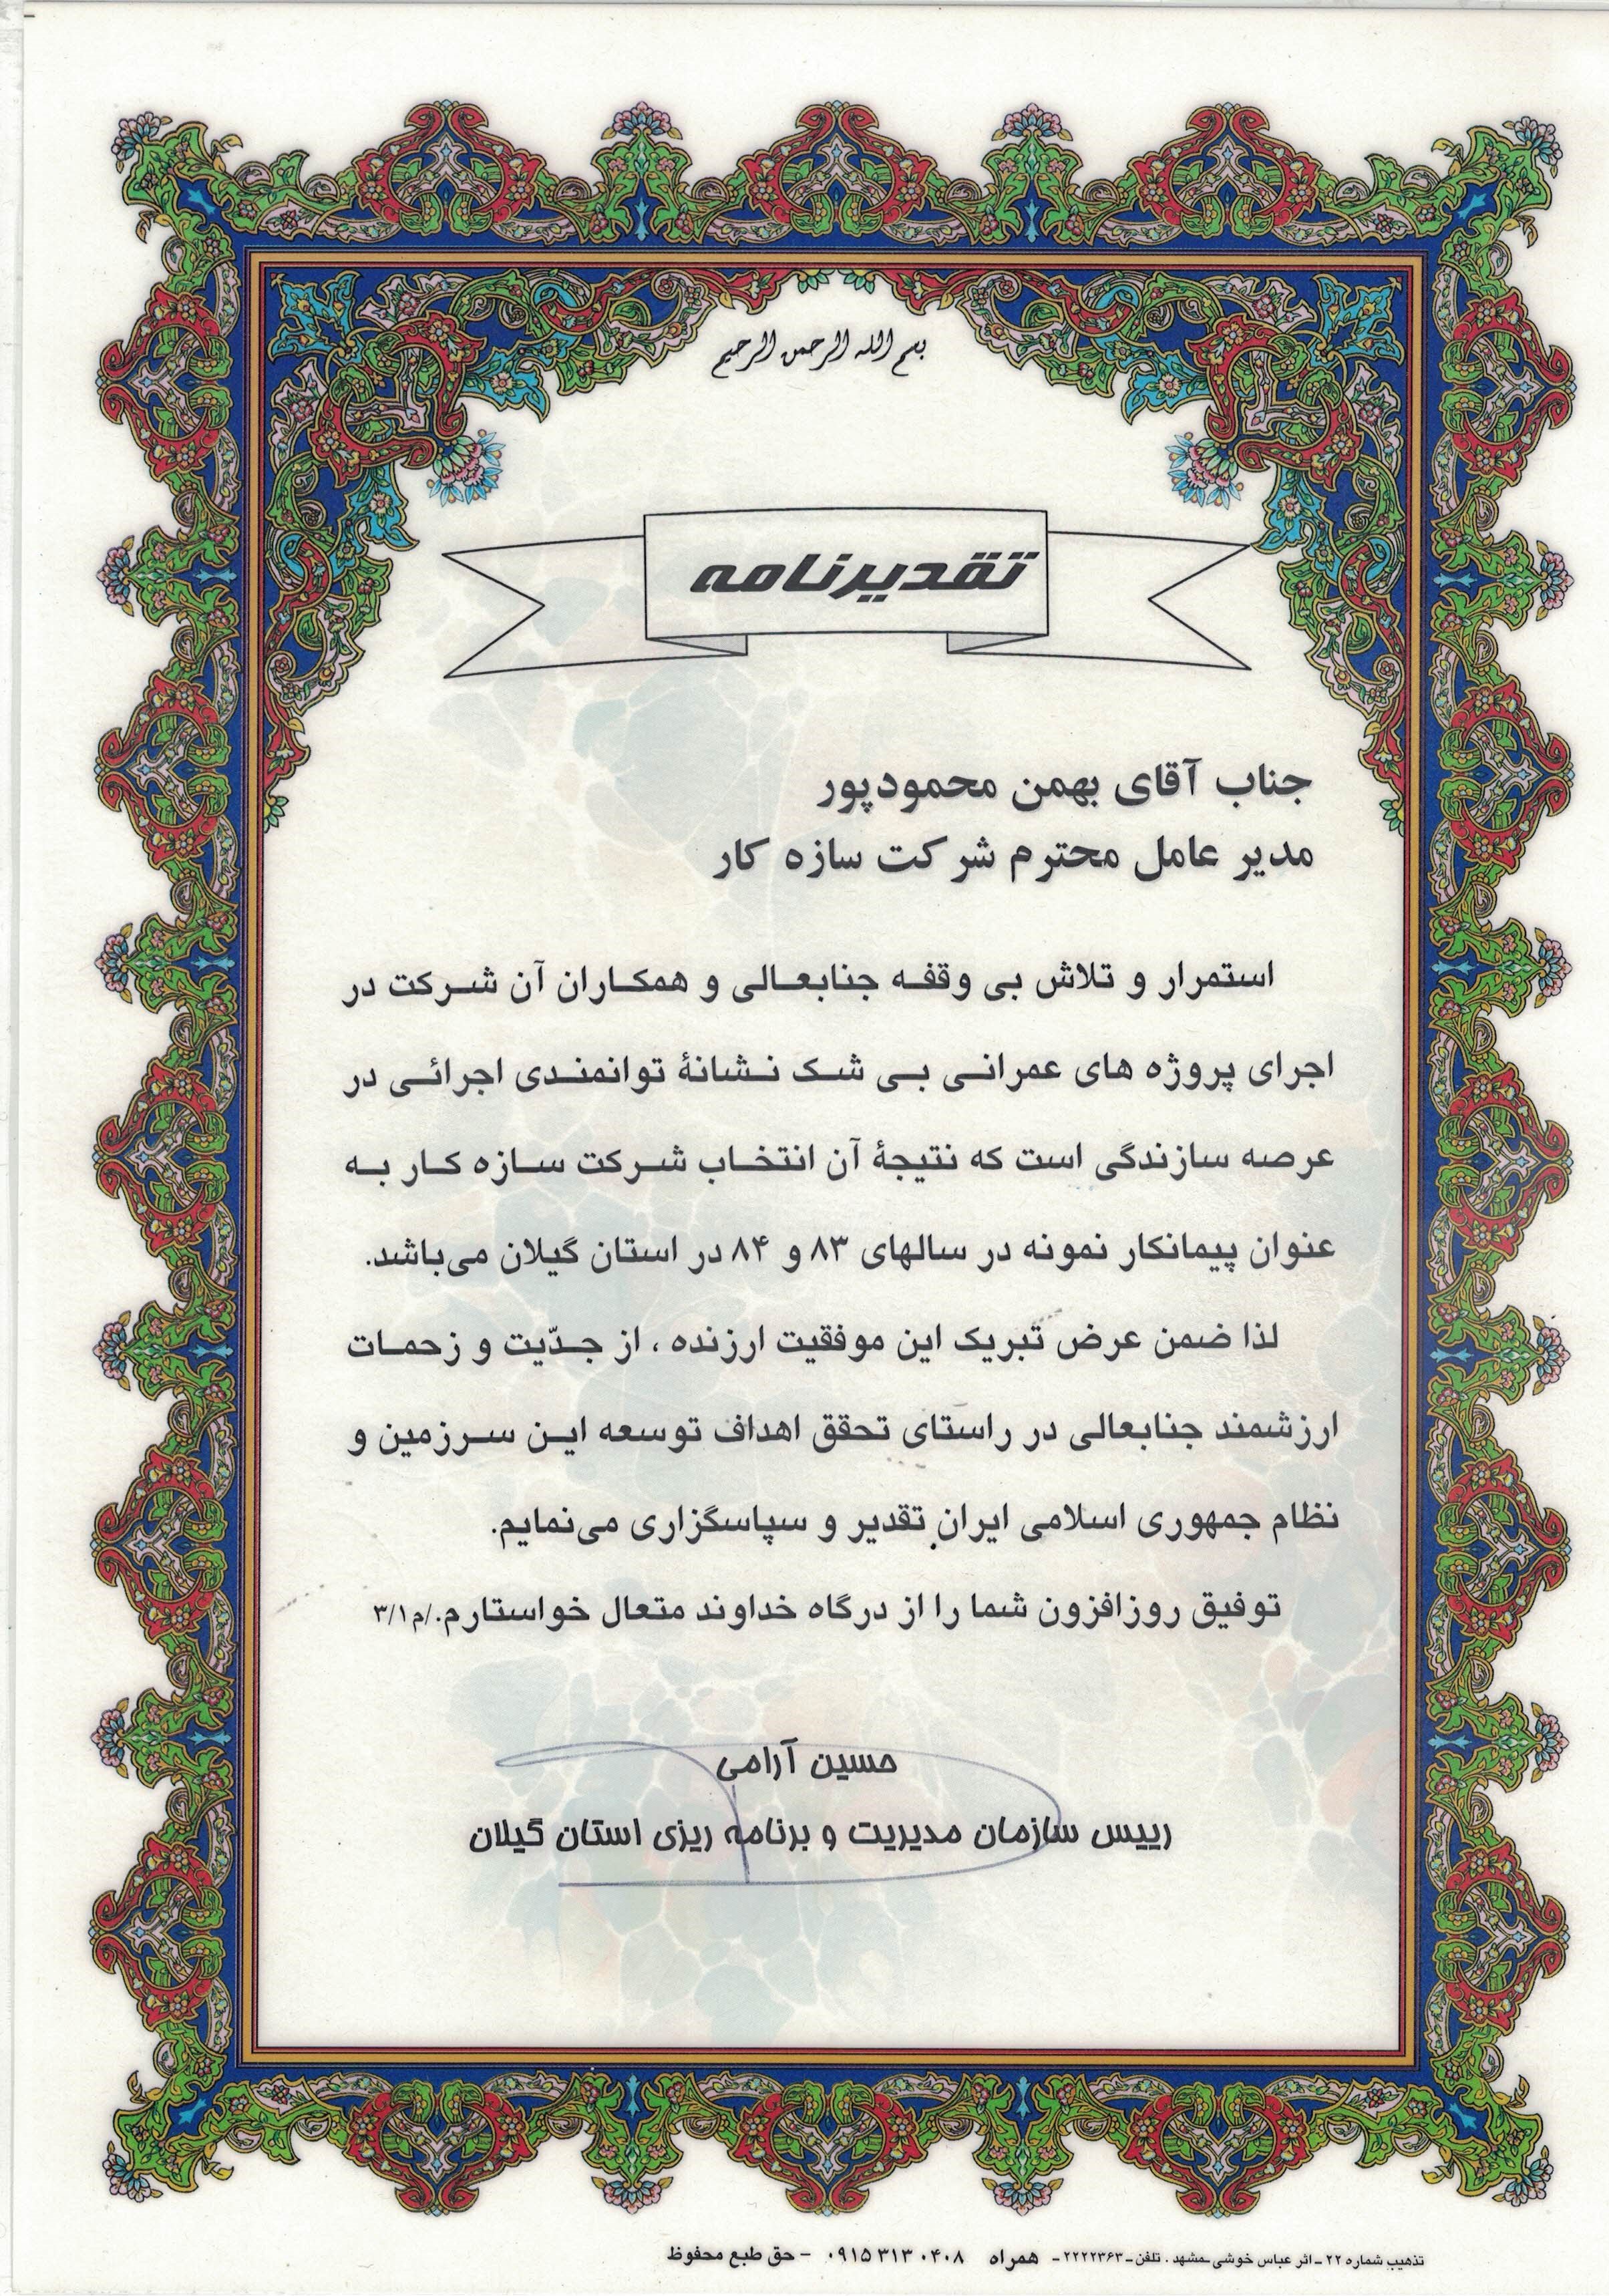 بسم الله الرحمن الرحیم
تقدیرنامه
جناب آقای بهمن محمودپور
مدیر عامل محترم شرکت سازه کار
استمرار و تلاش بی وقفه جنابعالی و همکاران آن شرکت در
اجرای پروژه های عمرانی بی شک نشانهٔ توانمندی اجرائی در
عرصه سازندگی است که نتیجهٔ آن انتخاب شرکت سازه کار به
عنوان پیمانکار نمونه در سالهای ۸۳ و ۸۴ در استان گیلان می‌باشد.
لذا ضمن عرض تبریک این موفقیت ارزنده ، از جدّیت و زحمات
ارزشمند جنابعالی در راستای تحقق اهداف توسعه این سرزمین و
نظام جمهوری اسلامی ایران تقدیر و سپاسگزاری می‌نمایم.
توفیق روزافزون شما را از درگاه خداوند متعال خواستارم./م۳/۱
حسین آرامی
رییس سازمان مدیریت و برنامه ریزی استان گیلان
تذهیب شماره ۲۲ ـ اثر عباس خوشی ـ مشهد . تلفن ـ ۲۲۲۲۳۶۳ ـ همراه ۰۴۰۸ ۳۱۳ ۰۹۱۵ - حق طبع محفوظ